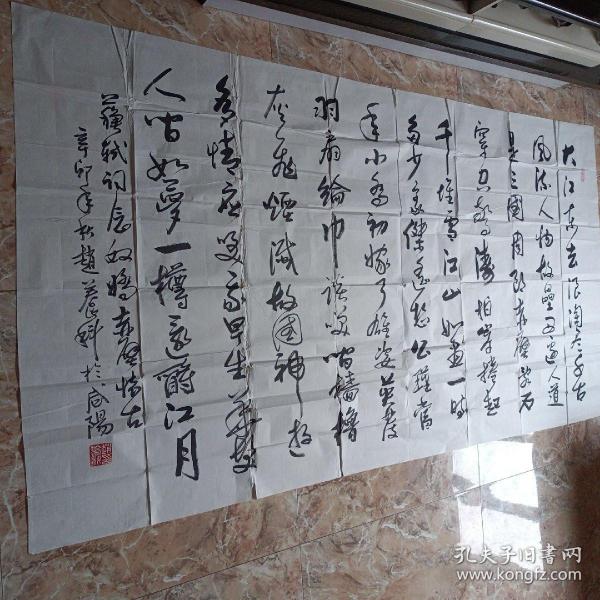 大江东去浪淘尽千古
風流人物故壘西邊人道
是三國周郎赤壁乱石
穿空驚濤拍岸捲起
千堆雪江山如畫一時
多少豪傑遥想公瑾當
年小喬初嫁了雄姿英發
羽扇綸巾談笑間檣櫓
灰飛煙滅故國神遊
多情應笑我早生華髮
人間如夢一樽還酹江月
蘇軾詞念奴嬌赤壁懷古
辛卯年秋趙養科於咸陽
孔夫子旧書网
www.kongfz.com